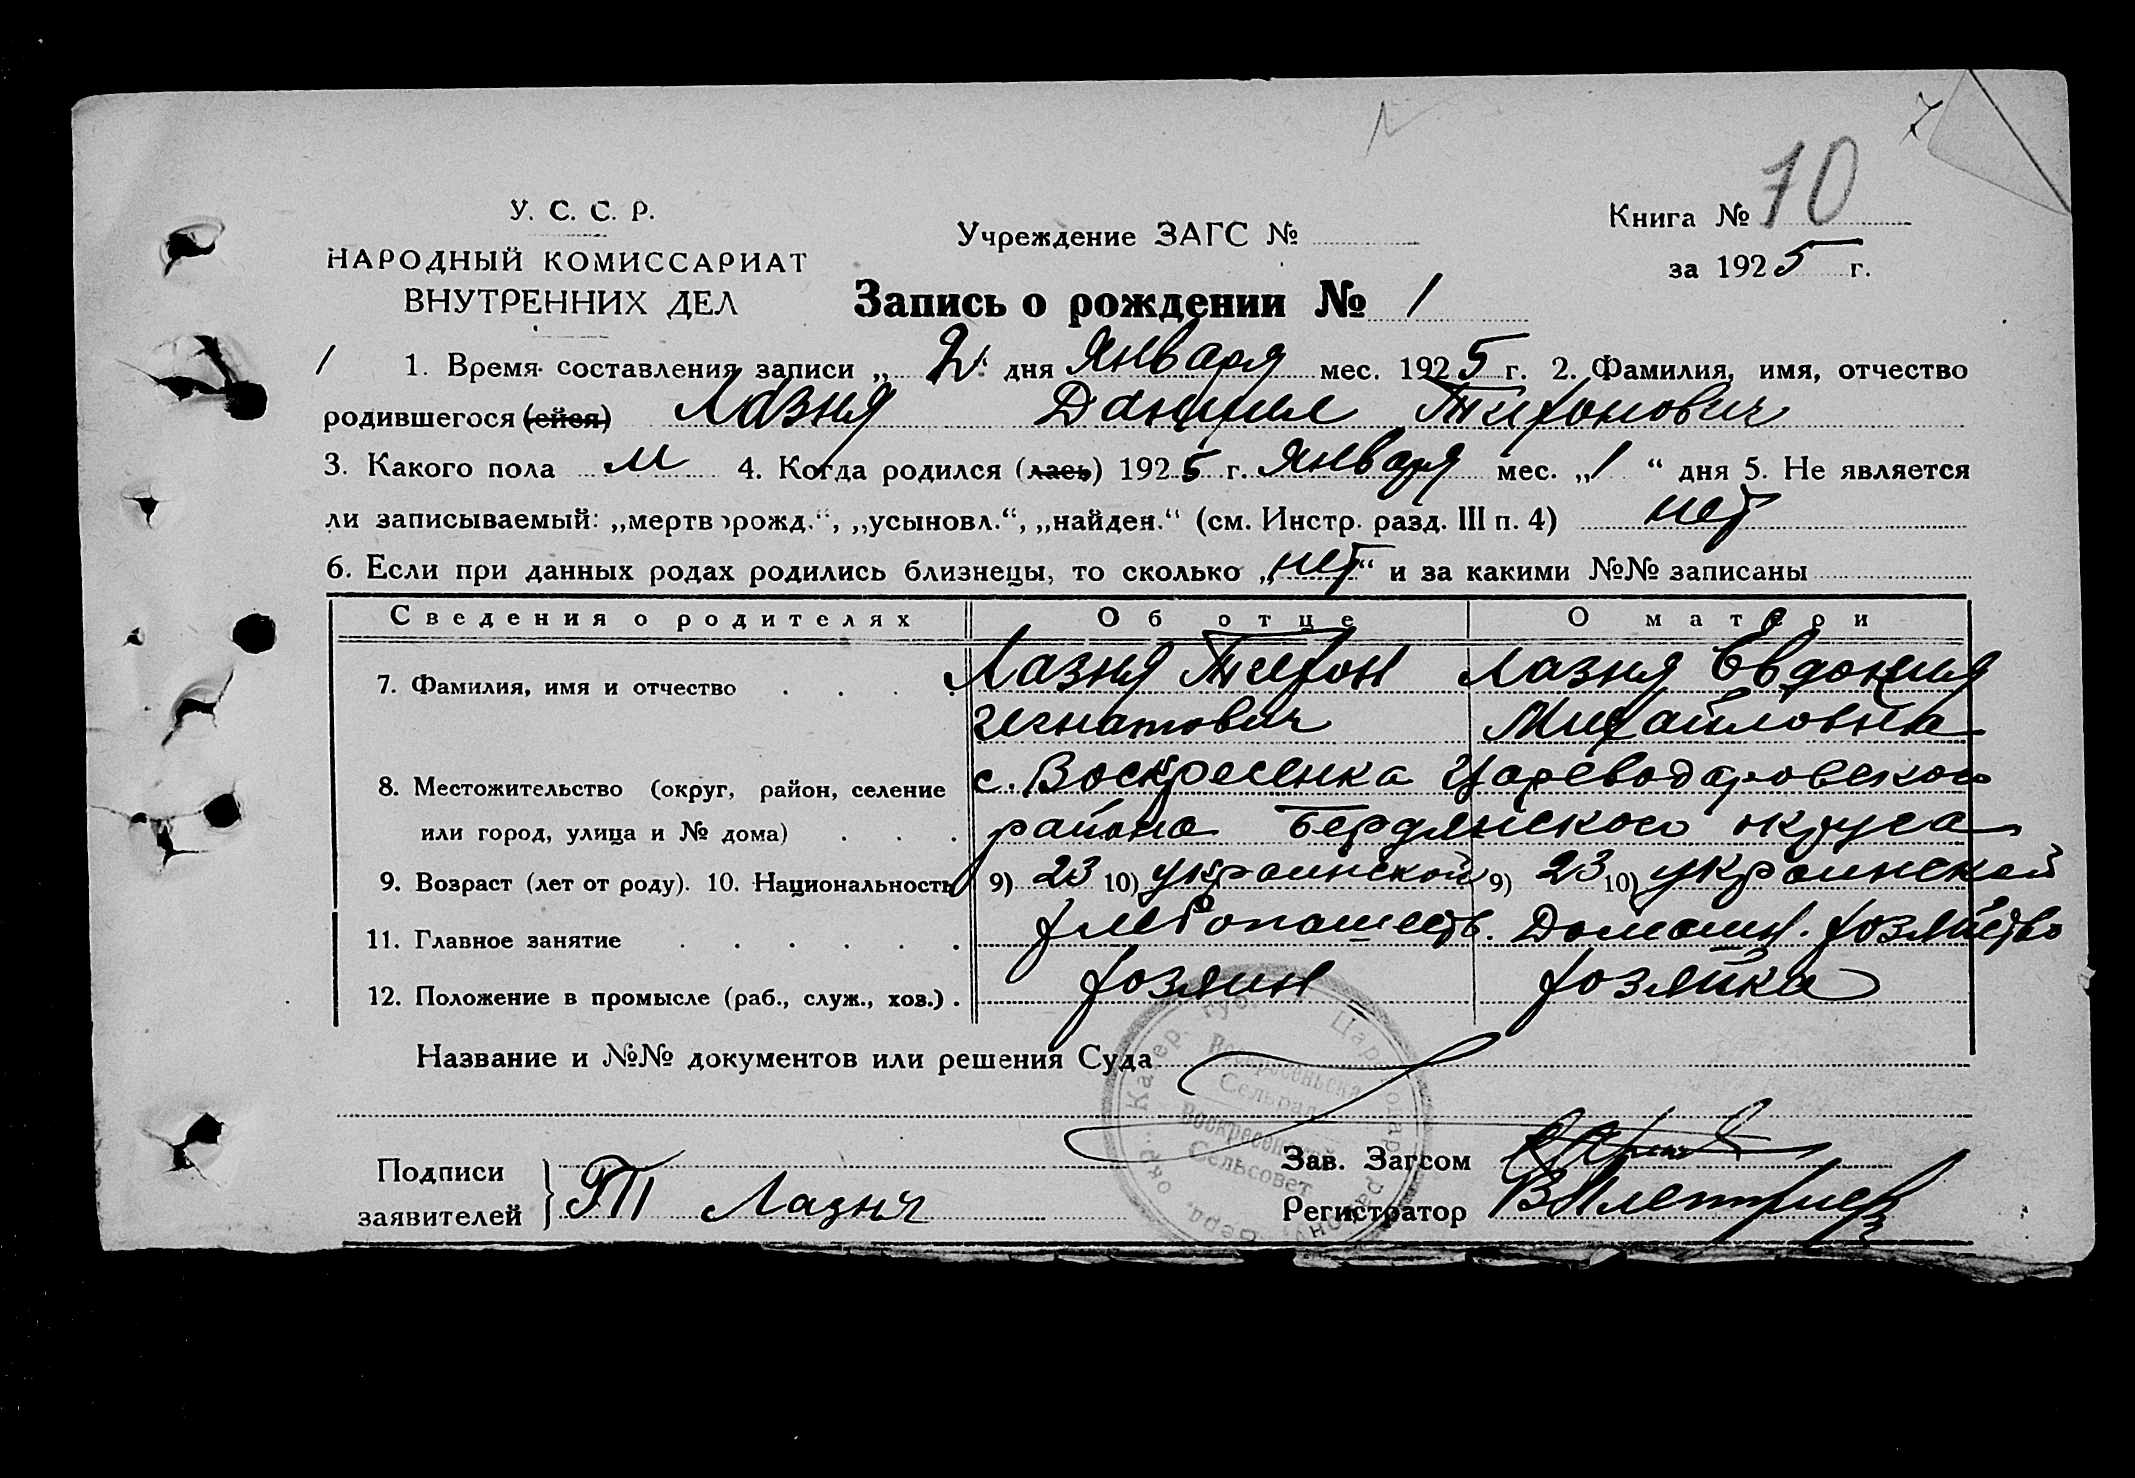 7
У. С. С. Р.
НАРОДНЫЙ КОМИССАРИАТ
ВНУТРЕННИХ ДЕЛ
Учреждение ЗАГС №
Книга № 10
за 1925 г.
Запись о рождении № 1
1 1. Время составления записи „ 2 “ дня Января мес. 1925 г. 2. Фамилия, имя, отчество
родившегося (ейся) Лазня Даниил Тихонович
3. Какого пола м 4. Когда родился (лась) 1925 г. Января мес. „1“ дня 5. Не является
ли записываемый: „мертворожд.“, „усыновл.“, „найден.“ (см. Инстр. разд. III п. 4) нет
6. Если при данных родах родились близнецы, то сколько „нет“ и за какими №№ записаны
Сведения о родителях Об отце О матери
7. Фамилия, имя и отчество . . . . Лазня Тихон Лазня Евдокия
Игнатович Михайловна
8. Местожительство (округ, район, селение с. Воскресенка Цареводаровского
или город, улица и № дома) . . . района Бердянского округа
9. Возраст (лет от роду). 10. Национальность 9) 23 10) украинской 9) 23 10) украинской
11. Главное занятие . . . . . . хлебопашеств. Домашн. хозяйство
12. Положение в промысле (раб., служ., хоз.) . хозяин хозяйка
Название и №№ документов или решения Суда
Катер. губ. Цареводар. район Бердя. окр.
Воскресенська
Сельрада
Воскресенский
Сельсовет
Подписи
заявителей } Т Лазня
Зав. Загсом
Регистратор